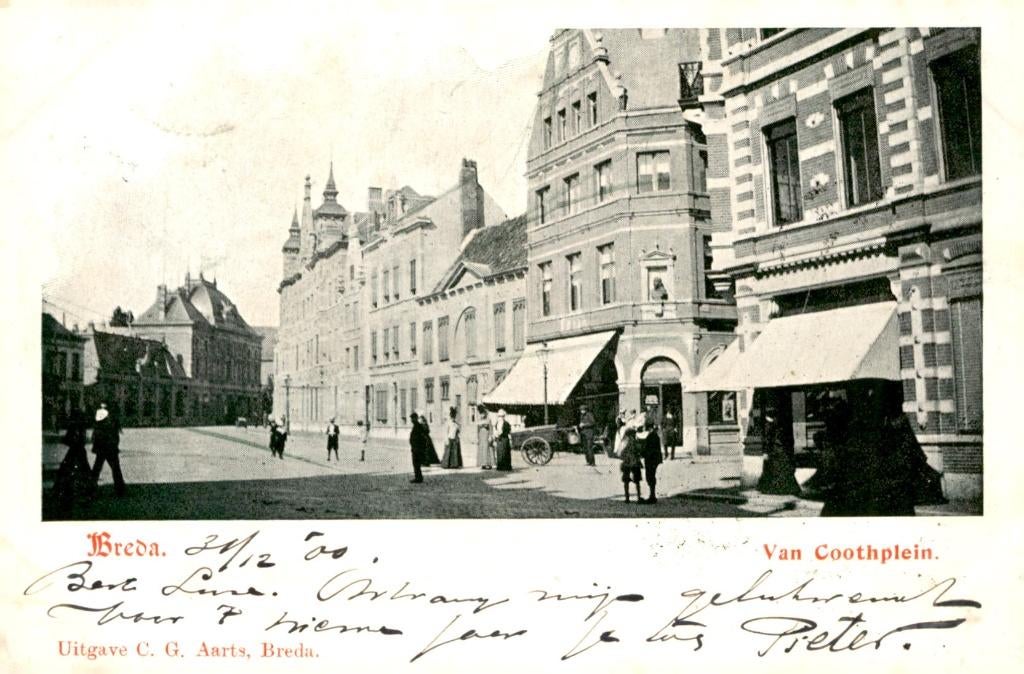 Breda. 31/12 '00.
Van Coothplein.
Beste Luse. Ontvang mijn gelukwensch
voor 't nieuwe jaar je
Pieter.
Uitgave C. G. Aarts, Breda.